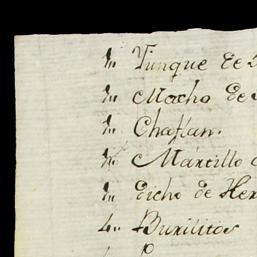 1„ Yunque de
1„ Macho de
1„ Chaflan.
1„ Martillo
1„ dicho de Her
4„ Burilitos